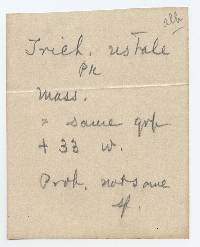 Trich. ustale
PK
Mass.
= same grp
+ 33 w.
Prob. not same
sp.